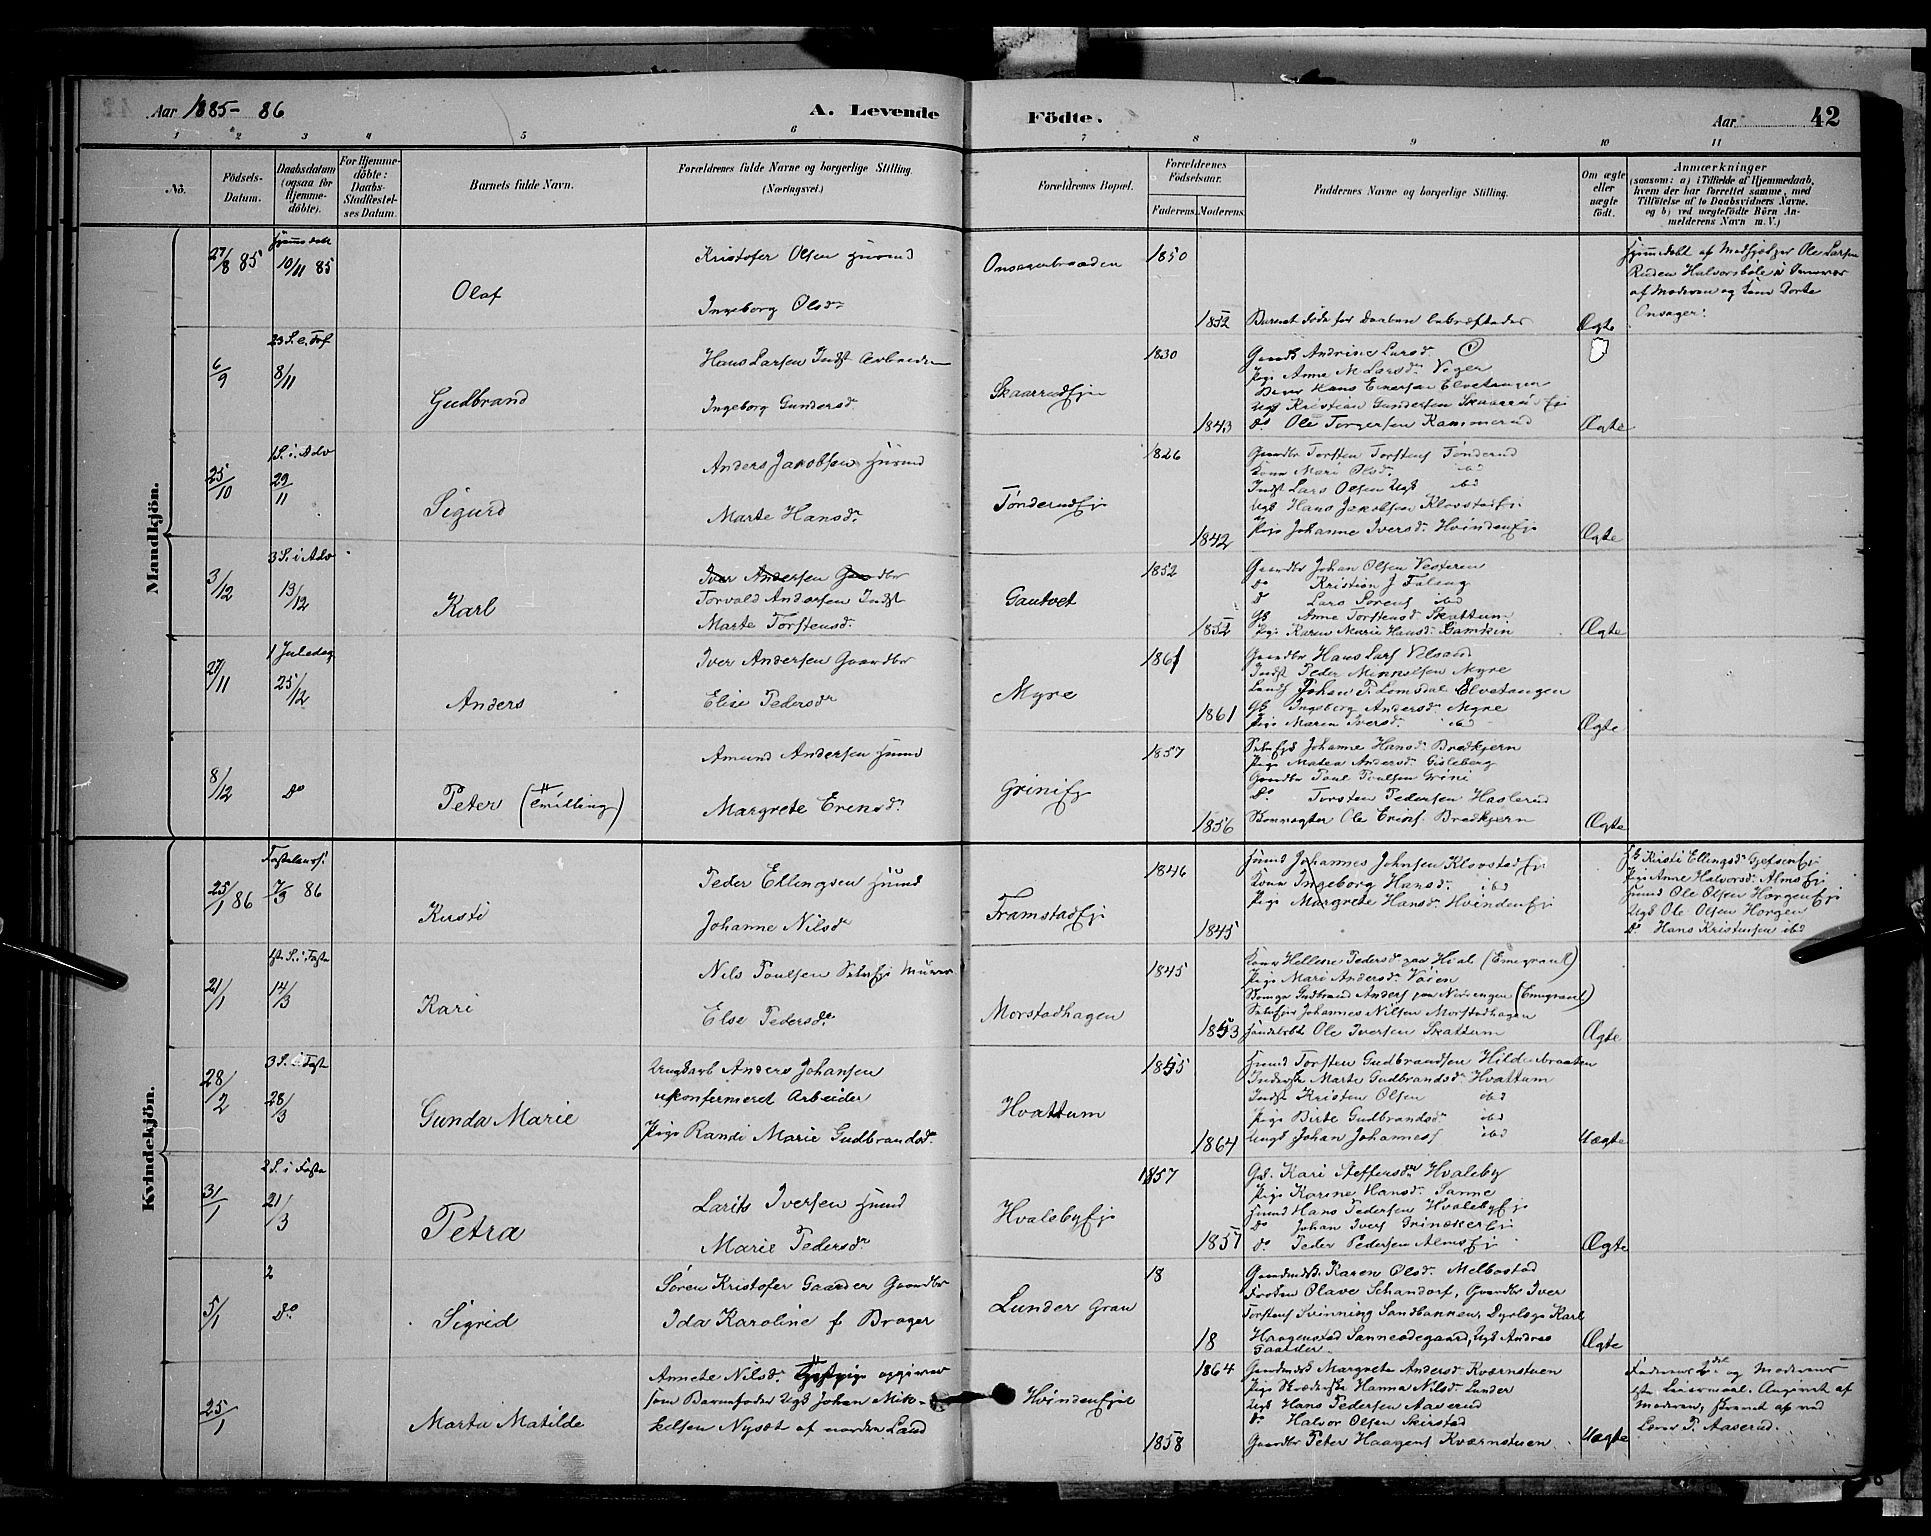 Aar 1885-86
A. Levende
Födte.
Aar
42
1 2 3 4 5 6 7 8 9 10 11
No.
Födsels-Datum.
Daabsdatum (ogsaa for Hjemmedöbte).
For Hjemmedöbte: Daabs-Stadfæstelses Datum.
Barnets fulde Navn.
Forældrenes fulde Navne og borgerlige Stilling. (Næringsvei.)
Forældrenes Bopæl.
Forældrenes Födselsaar.
Faderens. Moderens.
Faddernes Navne og borgerlige Stilling.
Om ægte eller uægte födt.
Anmærkninger
(saasom: a) i Tilfælde af Hjemmedaab, hvem der har forrettet samme, med Tilföielse af to Daabsvidners Navne, og b) ved uægtefödte Börn Anmelderens Navn m. V.)
Mandkjön.
27/8 85
Hjemmedøbt 10/11 85
Olaf
Kristofer Olsen Husmd
Ingeborg Olsdr
Onsagerbraaden
1850
1852
Barnet døde før Daaben bekræftedes
Ægte
Hjemmedøbt af Ole Larsen
Ruden Halvorsbøle i Nærvær
af Moderen og Dorte
Onsager.
6/9
23 S. e. Tref
8/11
Gudbrand
Hans Larsen Indst Arbeider
Ingeborg Gundersd.
Skaarrudeje
1830
1843
Gaardb Andrine Larsd.
Pige Anne M Larsdr Voger
Hans Einersen Elvetangen
Ugk Kristian Gundersen Skaarrudeje
Do Ole Torgersen Kammerud
Ægte
25/10
1 S. i. Adv
29/11
Sigurd
Anders Jakobsen Husmd
Marte Hansdr
Tønderudeje
1826
1842
Gaardbr Torsten Torstens Tønderud
Kone Mari Olsdr ibd
Indst Lars Olsen Ugk ibd
Ugk Hans Jakobsen Klovstadeje
Pige Johanne Iversd. Hvindeneje
Ægte
3/12
3 S. i Adv
13/12
Karl
Iver Andersen Gaardbr
Torvald Andersen Indst
Marte Torstensd.
Gautvet
1852
1852
Gaardbr Johan Olsen Vesteren
Do Kristian J Falang
D Lars Sørens ibd
Gk Anne Torstensd. Skattum
Pige Karen Marie Hansd. Gamkin
Ægte
27/11
1 Juledag
25/12
Anders
Iver Andersen Gaardbr
Elise Pedersdr
Myre
1861
1861
Gaardbr Hans Lars
Indst Peder Mikkelsen Myre
Landh Johan P. Lomsdal Elvetangen
Gk Ingeborg Andersd. Myre
Pige Maren Iversd. ibd
Ægte
8/12
Do
Peter (Tvilling)
Amund Andersen Husmd
Margrete Erensdr
Grinieje
1857
1856
Johanne Hansd. Bredkjern
Pige Matea Andersdr Gisleberg
Gaardbr Poul Poulsen Grini
Do Torsten Pedersen Haslerud
Ole Erins. Bredkjern
Ægte
Kvindekjön.
25/1 86
Fastelavns.
7/3 86
Kirsti
Peder Ellingsen Husmd
Johanne Nilsdr
Framstadeje
1846
1845
Husmd Johannes Johnsen Klovstadeje
Kone Ingeborg Hansd. ibd
Pige Margrete Hansd. Hvindeneje
Gk Kirsti Ellingsdr Gjefseneje
Pige Anne Halvorsdr Almseje
Husmd Ole Olsen Horgeneje
Ugk Ole Olsen Horgen
Do Hans Kristensen ibd
21/1
1ste S. i Faste
14/3
Kari
Nils Poulsen Murer
Else Pedersdr
Morstadhagen
1845
1853
Kone Helline Pedersd paa Hial (Emigrant)
Pige Mari Andersdr Voien
Gudbrand Anders paa (Emigrant)
Johannes Nilsen Morstadhagen
Ole Iversen Skattum
Ægte
28/2
3 S. i Faste
28/3
Gunda Marie
Ungdarb Anders Johansen
ukonfirmeret Arbeider
Pige Randi Marie Gudbrandsdr
Hvattum
1855
1864
Husmd Torsten Gudbrandsen Hildebraaten
Marte Gudbrandsdr Hvattum
Indst Kristen Olsen ibd
Pige Birte Gudbrandsd. ibd
Ungk Johan Johanness ibd
Uægte
31/1
2 S. i Faste
21/3
Petra
Larits Iversen Husmd
Marie Pedersdr
Hvalebyeje
1857
1857
Gk. Kari Steffensdr Hvaleby
Pige Karine Hansd. Sanne
Husmd Hans Pedersen Hvalebyeje
Do Johan Ivers Grinakereje
Do Peder Pedersen Almseje
Ægte
5/1
2
Do
Sigrid
Søren Kristofer Gaarder Gaardbr
Ida Karoline f Brager
Lunder Gran
18
18
Karen Olsd. Melbostad
Frøken Olave Schandorf, Gaardbr Iver
Torstens Svinning Sandbakken, Dyrlæge Karl
Haagenstad Sanneødegaard, Ugk Andreas
Gaarder
Ægte
25/1
Marta Matilde
Annete Nilsd. Pige opgiver
som Barnefader Ugk Johan Mik-
kelsen Nysæt af nordre Land
Hvindeneje
1864
1858
Margrete Andersd Kværnstuen
Pige Hanna Nilsd. Lunder
Ugk Hans Pedersen Aaserud
Do Halvor Olsen Skirstad
Gaardbr Peter Haagens Kværnstuen
Uægte
Faderens 2det og Moderens
1ste Leiermaal. Angivet af
Moderen,
Lærer P. Aaserud.